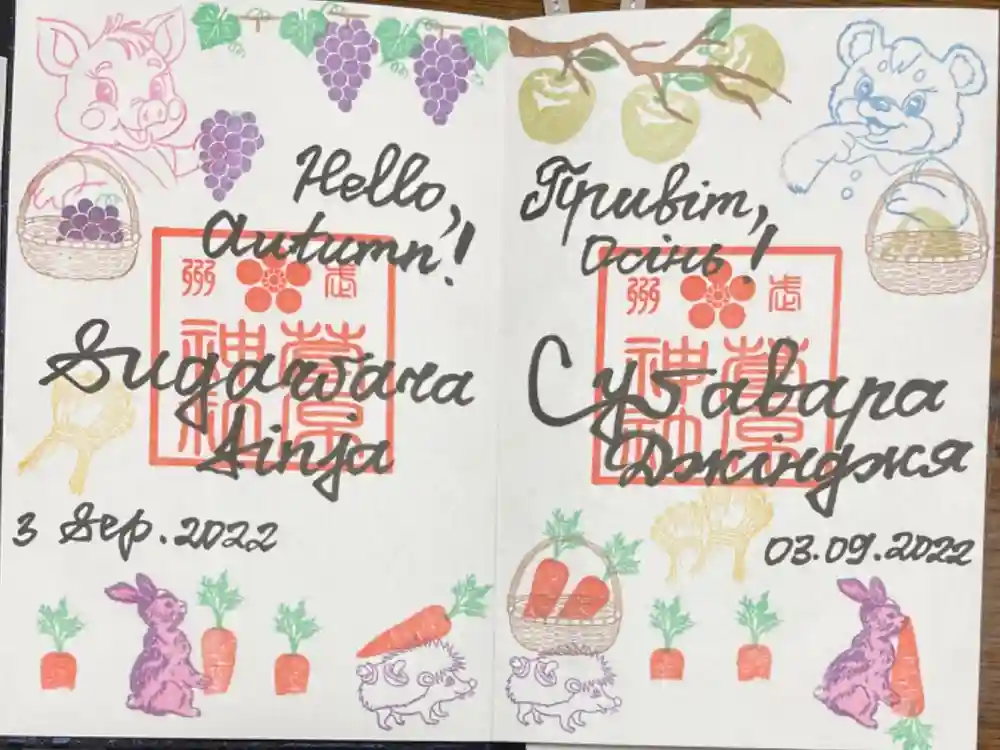 Hello,
Autumn!
武州
菅原
神社
Sugawara
Sinja
3 Sep. 2022
Привіт,
Осінь!
武州
菅原
神社
Сугавара
Джінджя
03.09.2022